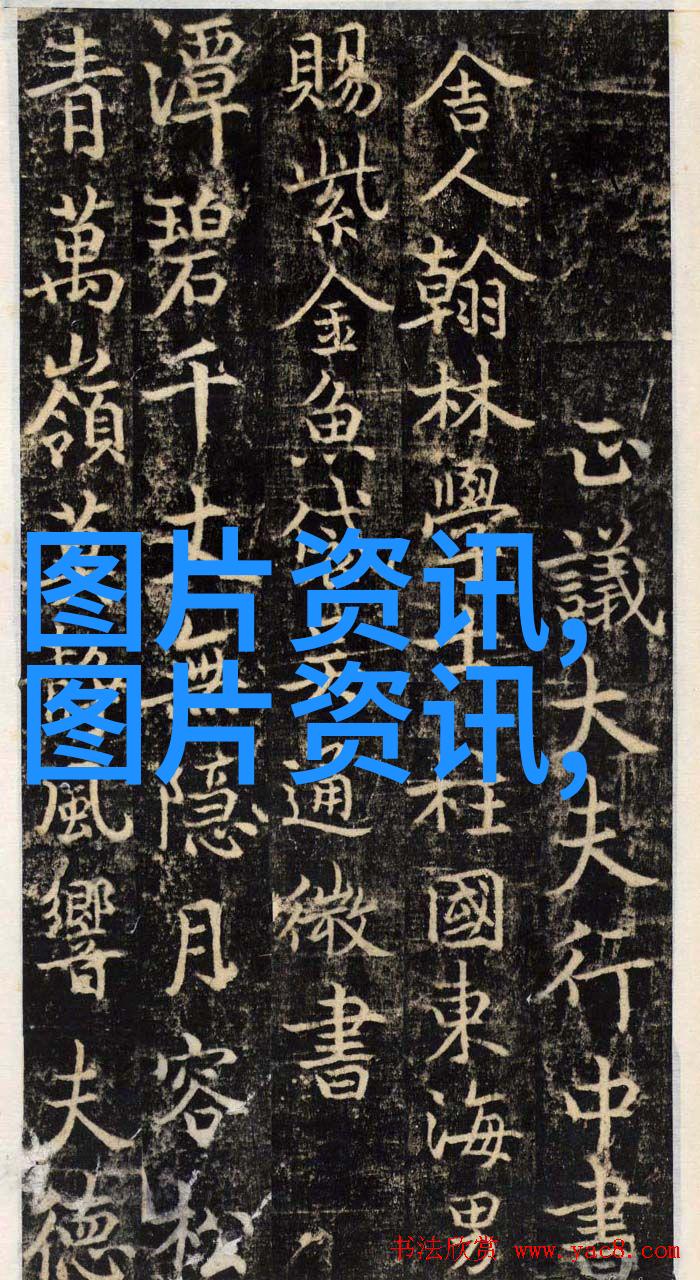 正議大夫行中書
舍人翰林學士柱國東海男
賜紫金魚袋通微書
潭碧千丈無隱月容松
青萬嶺風響夫德
图片资讯,
图片资讯,
书法欣赏 www.yac8.com